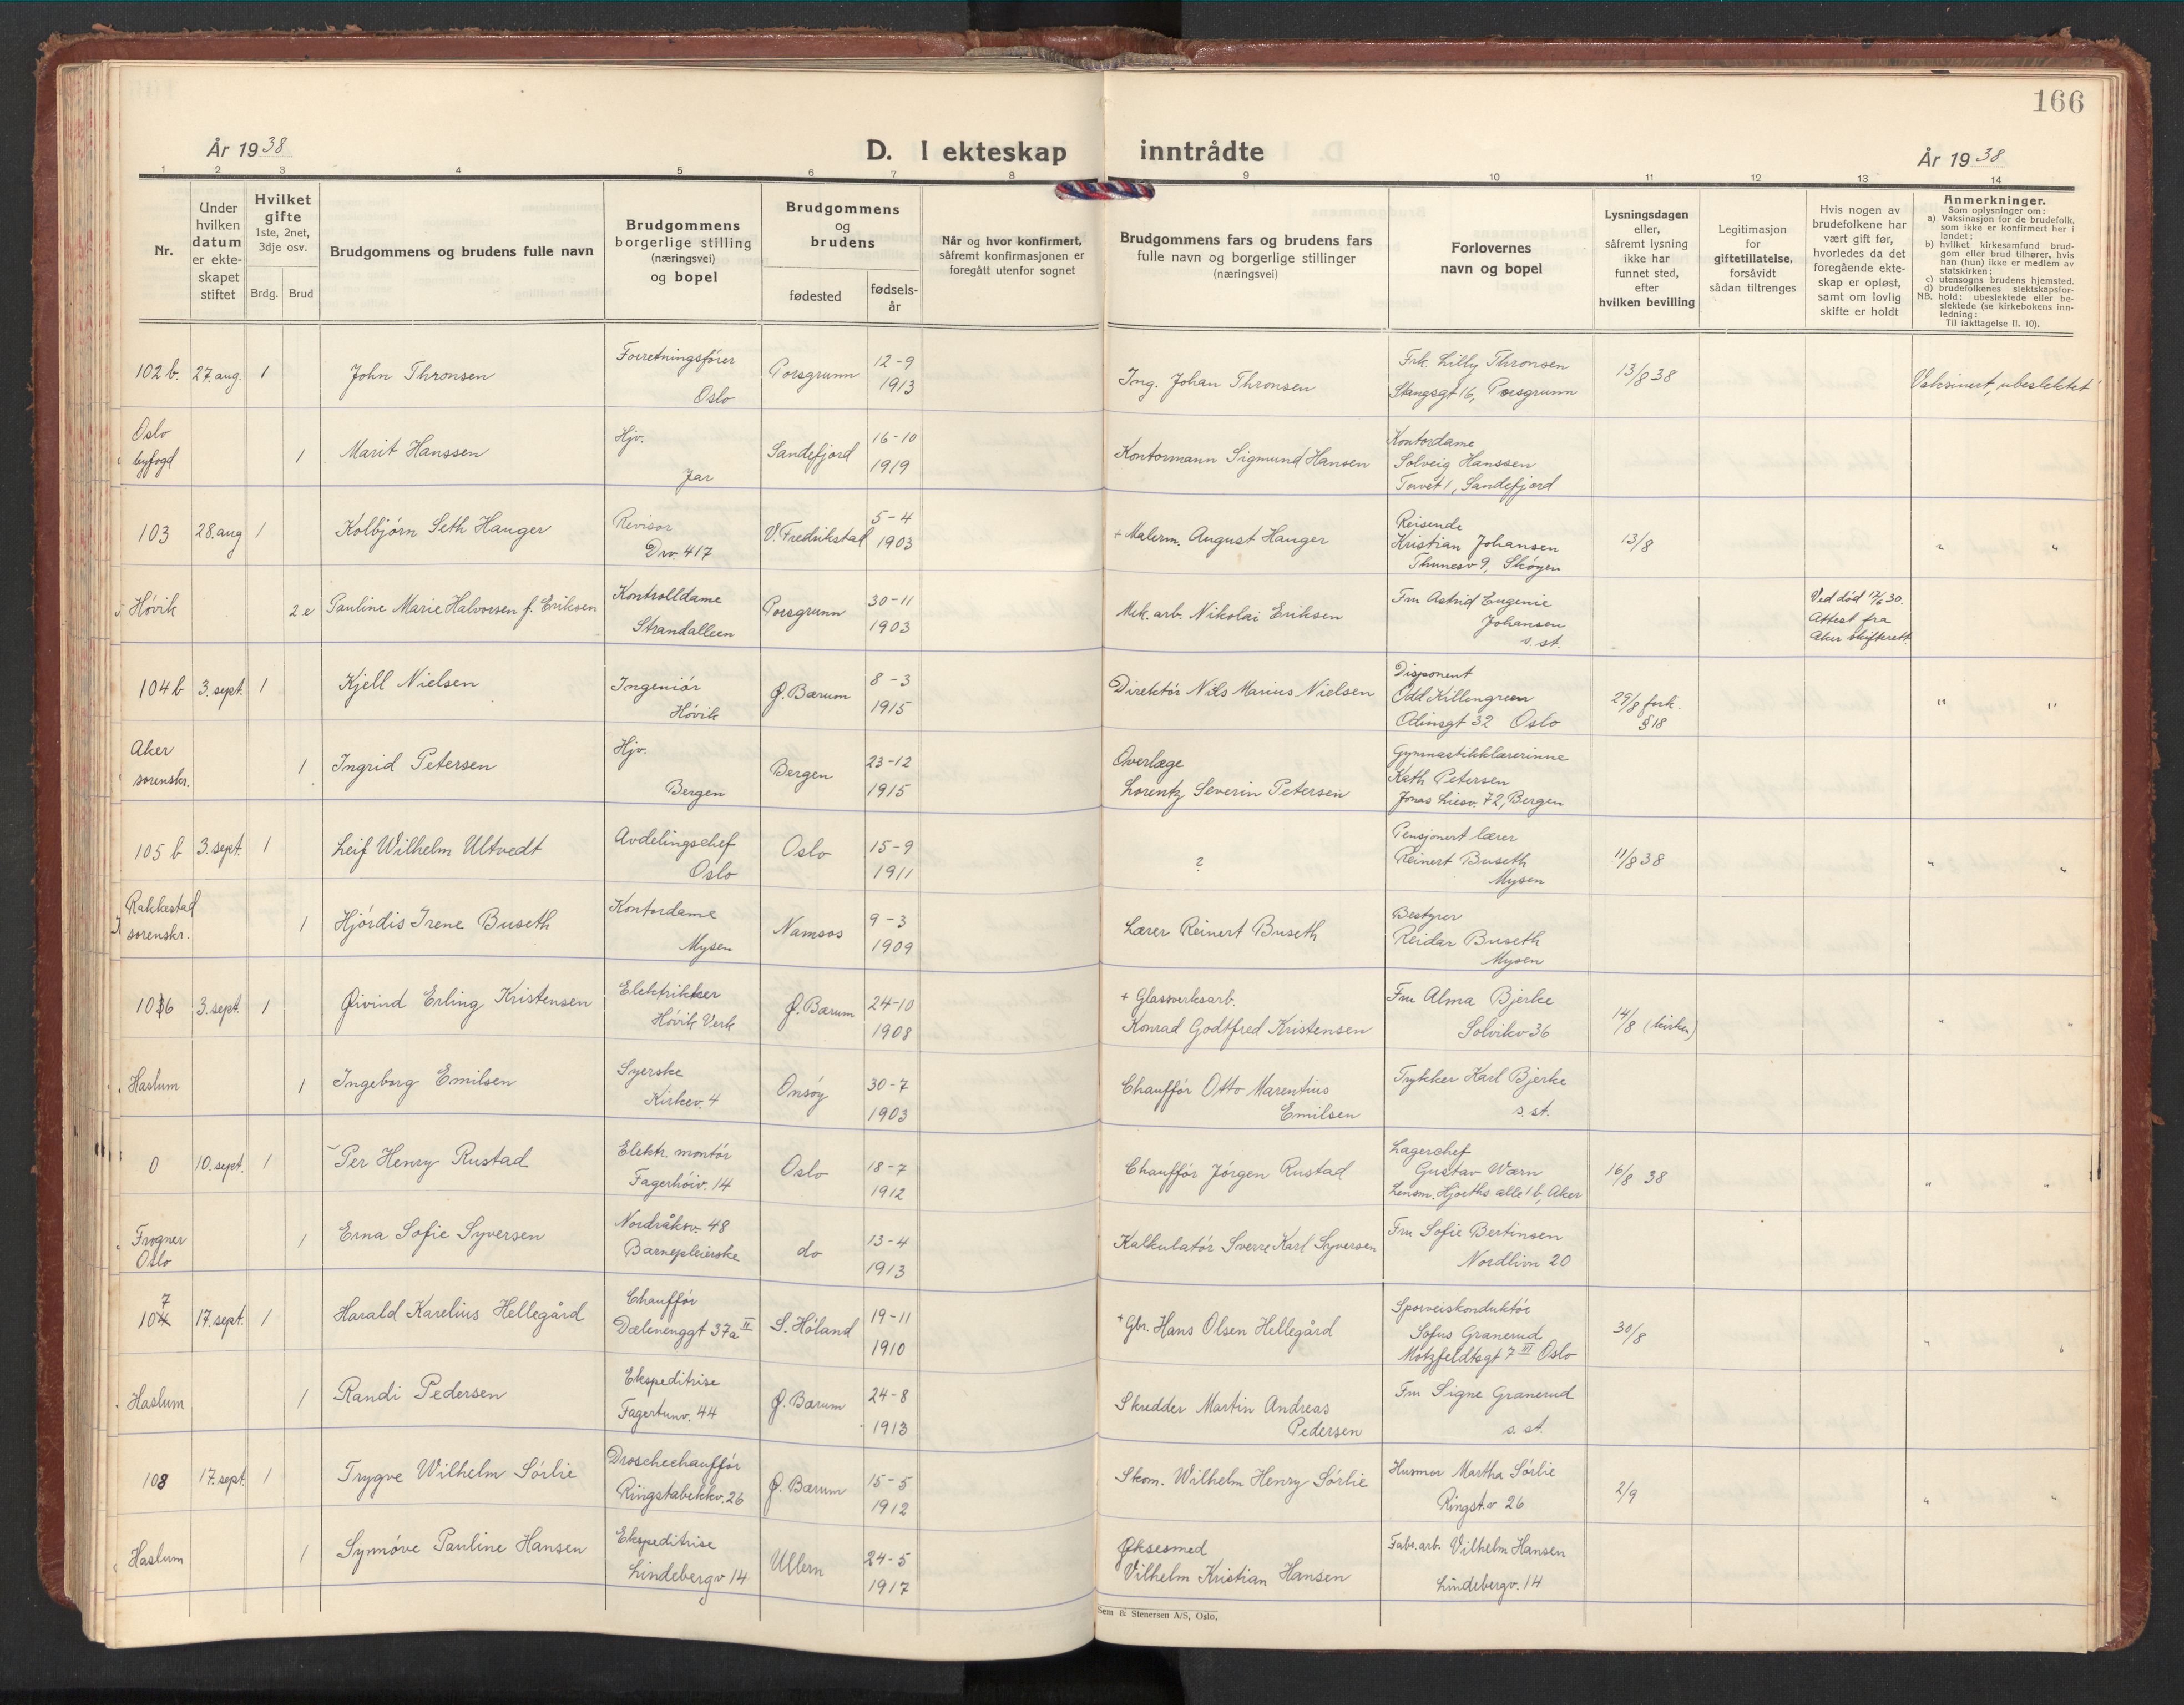 166
År 1938
D. I ekteskap inntrådte
År 1938
1 2 3 4 5 6 7 8 9 10 11 12 13 14
Nr.
Under
hvilken
datum
er ekte-
skapet
stiftet
Hvilket
gifte
1ste, 2net,
3dje osv.
Brdg. Brud
Brudgommens og brudens fulle navn
Brudgommens
borgerlige stilling
(næringsvei)
og bopel
Brudgommens
og
brudens
fødested
fødsels-
år
Når og hvor konfirmert,
såfremt konfirmasjonen er
foregått utenfor sognet
Brudgommens fars og brudens fars
fulle navn og borgerlige stillinger
(næringsvei)
Forlovernes
navn og bopel
Lysningsdagen
eller,
såfremt lysning
ikke har
funnet sted,
efter
hvilken bevilling
Legitimasjon
for
giftetillatelse,
forsåvidt
sådan tiltrenges
Hvis nogen av
brudefolkene har
vært gift før,
hvorledes da det
foregående ekte-
skap er opløst,
samt om lovlig
skifte er holdt
Anmerkninger.
Som oplysninger om:
a) Vaksinasjon for de brudefolk,
som ikke er konfirmert her i
landet;
b) hvilket kirkesamfund brud-
gom eller brud tilhører, hvis
han (hun) ikke er medlem av
statskirken;
c) utensogns brudens hjemsted.
d) brudefolkenes slektskapsfor-
NB. hold: ubeslektede eller be-
slektede (se kirkebokens inn-
ledning:
Til iakttagelse II. 10).
102 b. 27. aug. 1 John Thronsen
Forretningsfører
Oslo
Porsgrunn
12-9
1913
Ing. Johan Thronsen
Frk. Lilly Thronsen
Stangsgt 16, Porsgrunn
13/8 38
Vaksinert, ubeslektet
Oslo
byfogd
1 Marit Hanssen
Hjv.
Jar
Sandefjord
16-10
1919
Kontormann Sigmund Hansen
Kontordame
Solveig Hanssen
Torvet 1, Sandefjord
103 28. aug 1 Kolbjørn Seth Hauger
Revisor
Drv. 417
V. Fredrikstad
5-4
1903
+ Malerm. August Hauger
Reisende
Kristian Johansen
Thunesv 9, Skøyen
13/8
" "
Høvik
2 e Pauline Marie Halvorsen f. Eriksen
Kontrolldame
Strandalleen
Porsgrunn
30-11
1903
Mek. arb. Nikolai Eriksen
Fru Astrid Eugenie
Johansen
s. st.
Ved død 17/6 30.
Attest fra
Aker skifterett.
104 b 3. sept. 1 Kjell Nielsen
Ingeniør
Høvik
Ø. Bærum
8-3
1915
Direktør Nils Marius Nielsen
Disponent
Odd Killengreen
Odinsgt 32 Oslo
29/8 fork.
§ 18
" "
Aker
sorenskr.
1 Ingrid Petersen
Hjv.
Bergen
Bergen
23-12
1915
Overlæge
Lorentz Severin Petersen
Gymnastikklærerinne
Kath Petersen
Jonas Liesv. 72, Bergen
105 b 3. sept. 1 Leif Wilhelm Ultvedt
Avdelingschef
Oslo
Oslo
15-9
1911
?
Pensjonert lærer
Reinert Buseth
Mysen
11/8 38
" "
Rakkestad
sorenskr.
1 Hjørdis Irene Buseth
Kontordame
Mysen
Namsos
9-3
1909
Lærer Reinert Buseth
Bestyrer
Reidar Buseth
Mysen
106 3. sept. 1 Øivind Erling Kristensen
Elektrikker
Høvik Verk
Ø. Bærum
24-10
1908
+ Glassverksarb.
Konrad Godtfred Kristensen
Fru Alma Bjerke
Solvikv 36
14/8 (kirken)
" "
Haslum
1 Ingeborg Emilsen
Syerske
Kirkev. 4
Onsøy
30-7
1903
Chauffør Otto Marentius
Emilsen
Trykker Karl Bjerke
s. st.
0 10. sept. 1 Per Henry Rustad
Elektr. montør
Fagerhøiv. 14
Oslo
18-7
1912
Chauffør Jørgen Rustad
Lagerchef
Gustav Wærn
Lensm. Hjorths alle 1 b, Aker
16/8 38
" "
Frogner
Oslo
1 Erna Sofie Syversen
Nordråksv. 48
Barnepleierske
do
13-4
1913
Kalkulatør Sverre Karl Syversen
Fru Sofie Bertinsen
Nordlivn 20
107 17. sept. 1 Harald Karelius Hellegård
Chauffør
Dælenenggt 37a II
S. Høland
19-11
1910
+ Gbr. Hans Olsen Hellegård
Sporveiskonduktør
Sofus Granerud
Motzfeldtsgt 7 III Oslo
30/8
" "
Haslum
1 Randi Pedersen
Ekspeditrise
Fagertunv. 44
Ø. Bærum
24-8
1913
Skredder Martin Andreas
Pedersen
Fru Signe Granerud
s. st.
108 17. sept 1 Trygve Wilhelm Sørlie
Droschechauffør
Ringstabekkv. 26
Ø. Bærum
15-5
1912
Skom. Wilhelm Henry Sørlie
Husmor Martha Sørlie
Ringst. v 26
2/9
" "
Haslum
1 Synnøve Pauline Hansen
Ekspeditrise
Lindebergv 14
Ullern
24-5
1917
Øksesmed
Vilhelm Kristian Hansen
Fabr. arb. Vilhelm Hansen
Lindebergv. 14
Sem & Stenersen A/S, Oslo,